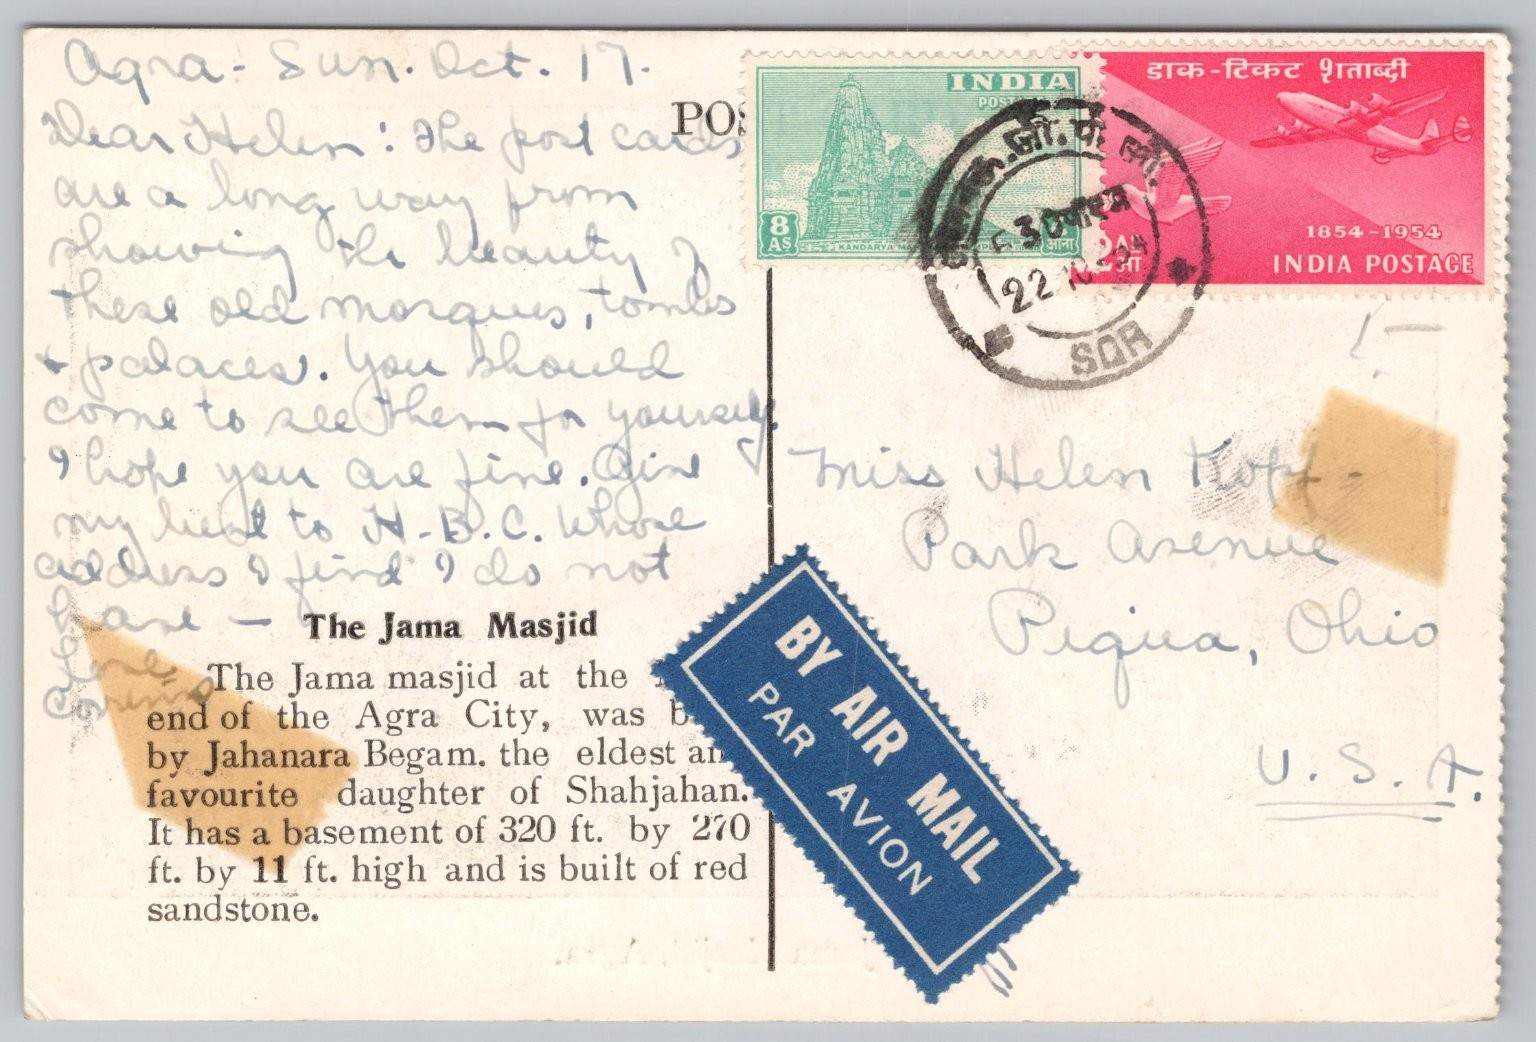 Agra - Sun. Oct. 17.
Dear Helen: The post cards
are a long way from
showing the beauty of
these old mosques, tombs
+ palaces. You should
come to see them for yourself.
I hope you are fine. Give
my best to H.B.C. whose
address I find I do not
have —
Love,
Corinna
The Jama Masjid
The Jama masjid at the
end of the Agra City, was
by Jahanara Begam. the eldest an
favourite daughter of Shahjahan.
It has a basement of 320 ft. by 270
ft. by 11 ft. high and is built of red
sandstone.
POS
INDIA
POSTAGE
8
AS
KANDARYA
आना
डाक-टिकट शताब्दी
1854-1954
INDIA POSTAGE
2 AS
आ
22 10 54
SQR
Miss Helen Kopf
Park Avenue
Piqua, Ohio
U.S.A.
BY AIR MAIL
PAR AVION